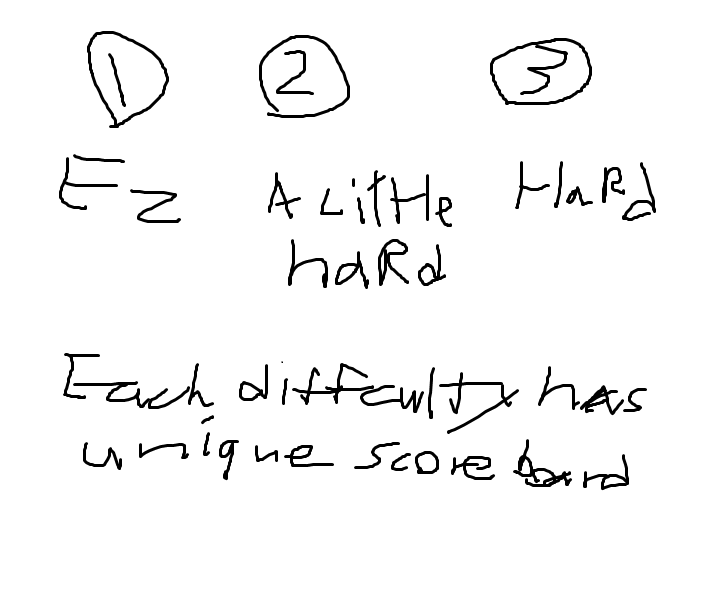 1 2 3
Ez A Little HaRd
haRd
Each difficulty has
unique score board